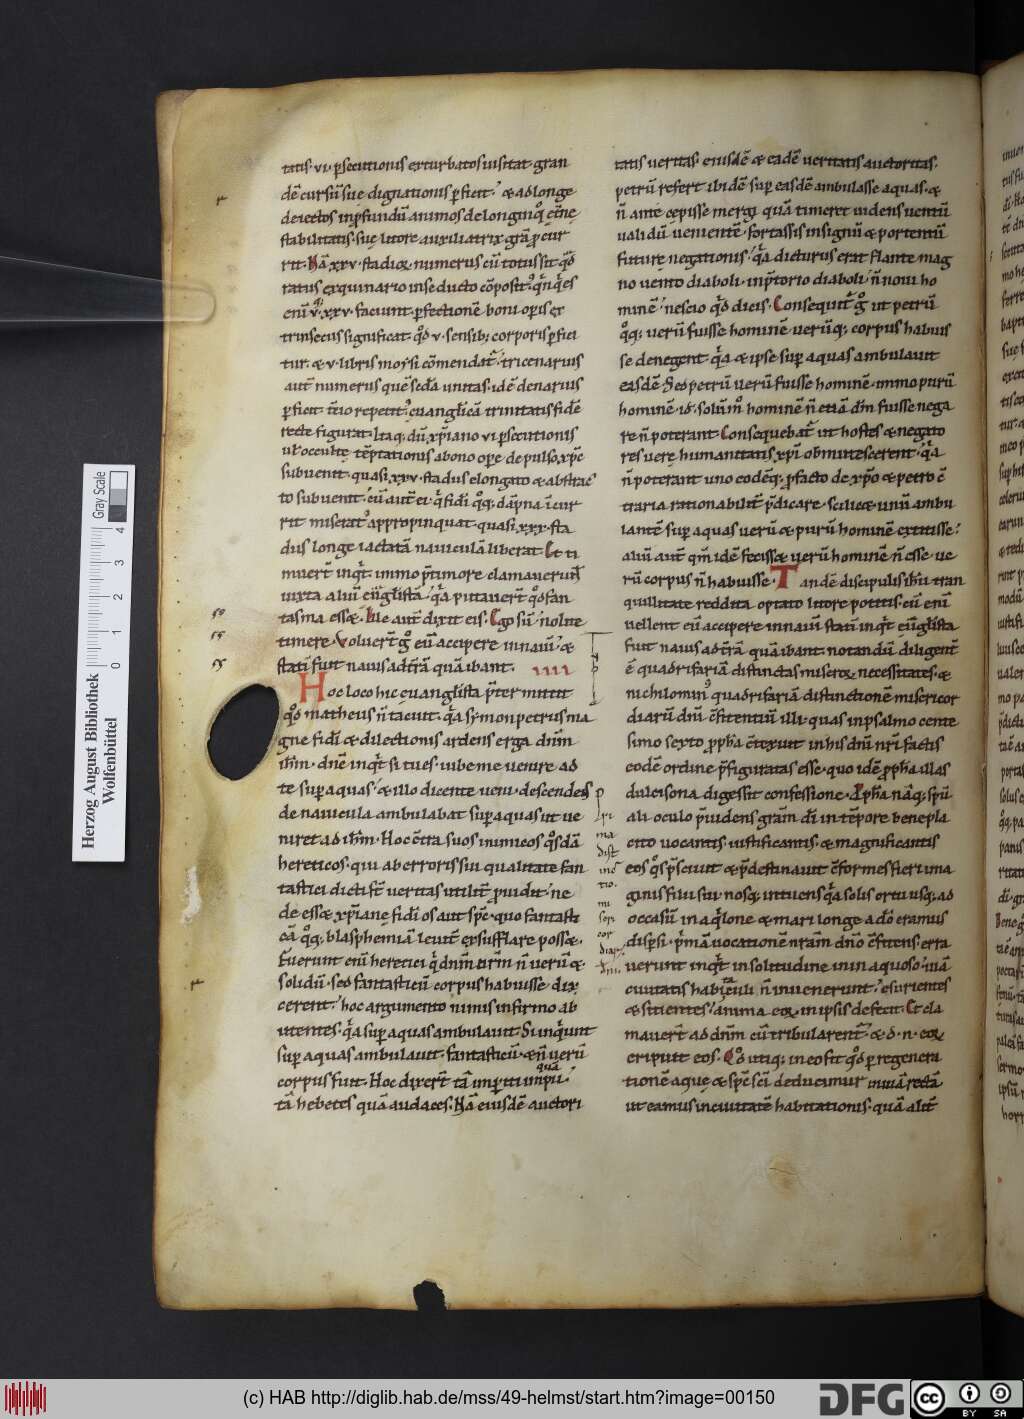 tatis · vi · p̄secutionis exturbatos uisitat gran
dē cursū suę dignationis p̄ficit · & ad longe
deiectos in p̄fundū animos de longinq̊
stabilitatis suę litore auxiliatrix grā p̄cur
rit · Nā xxv · stadioꝝ numerus cū totus sit q̊d
ratus ex quinario in se ducto cōposit⁹
enī v · xxv · faciunt p̄fectionē boni op̄is ex
trinsecus significat q̊d v · sensib; corporis p̄fici
tur · & v · libris moysi cōmendat᷑ · tricenarius
aut̄ numerus quē sc̄da unitas · id ē denarius
p̄ficit euanglicā trinitatis fidē
recte figurat · Itaq; dū xp̄iano vi p̄secutionis
ut occultę tēptationis a bono op̄e depulso xp̄c
subuenit · quasi xxv · stadiis elongato & abstrac
to subuenit · cū aut̄ ei · q̊q;
rit miserat᷑ appropinquat · quasi xxx · sta
diis longe iactatā nauiculā liberat · Et ti
muer̄t inq̄t · immo p̄ timore clamauerunt̄
iuxta aliū euḡlistā · q̄a putauer̄t q̊d fan
tasma ess& · Hic aut̄ dixit eis · Ego sū · nolite
timere · Voluer̄t g̊ eū accipere in nauī · &
statī fuit nauis ad t̄rā quā ibant · IIII
Hoc loco hic euanglista p̄termittit
q̊d matheus n̄ tacuit · q̄a symon petrus ma
gne fidei & dilectionis ardens erga dn̄m
ih̄m · dn̄e inq̄t si tu es · iube me uenire ad
te sup̄ aquas · & illo dicente ueni · descendens
de nauicula ambulabat sup̄ aquas ut ue
niret ad ih̄m · Hoc c̄tra suos inimicos q̊sdā
hereticos · qui ab erroris sui qualitate fan
tastici dicti s̄t ueritas utilit̄ p̄uidit · ne
deess& xp̄ianę fidei os aut sp̄c · quo fantasti
cā q̊q; blasphemiā leuit̄ exsufflare poss& ·
Fuerunt enī heretici q̊ dn̄m n̄rm n̄ uerū &
solidū · sed fantasticū corpus habuisse dix
cerent · hoc argumento nimis infirmo ab
utentes · q̄a sup̄ aquas ambulauit · Si inquiunt
sup̄ aquas ambulauit · fantasticū · & n̄ uerū
corpus fuit · Hoc dixer̄t tā imp̄iti
quā
tā hebetes quā audaces · Nā eiusdē auctori
tatis ueritas · eiusdē & eadē ueritatis auctoritas ·
petrū refert ibidē sup̄ easdē ambulasse aquas · &
n̄ ante cepisse mergi quā timeret uidens uentū
ualidū uenientē · fortassis in signū & portentū
futurę negationis · q̄a dicturus erat flante mag
no uento diaboli · inp̄torio diaboli · n̄ noui ho
minē · nescio q̊d dicis · Consequit᷑ g̊ ut petrū
q̊q; uerū fuisse hominē · uerūq; corpus habuis
se denegent · q̄a & ipse sup̄ aquas ambulauit
easdē · Sed petrū uerū fuisse hominē · immo purū
hominē · id · solūm̊ hominē n̄ etiā dm̄ fuisse nega
re n̄ poterant · Consequebat᷑ ut hostes & negato
res uerę humanitatis xp̄i obmutescerent · q̄a
n̄ poterant uno eodēq; p̄ facto de xp̄o & petro c̄
traria rationabilit̄ p̄dicare · scilicet unū ambu
lantē sup̄ aquas uerū & purū hominē extitisse ·
aliū aut̄ qm̄ idē feciss& uerū hominē n̄ esse · ue
rū corpus n̄ habuisse · Tandē discipulis ih̄m tran
quillitate reddita optato litore potitis · cū enī
uellent eū accipere in nauī statī inq̄t euḡlista
fuit nauis ad t̄rā quā ibant · notandū diligent̄
ē quadrifariā distinctas miseroꝝ necessitates · &
nichilomin⁹ quadrifariā distinctionē misericor
diarū dn̄i c̄fitentiū illi · quas in psalmo cente
simo sexto pp̄ha c̄texuit in his dn̄i nr̄i factis
eodē ordine p̄figuratas esse · quo idē pp̄ha illas
dulcisona digessit confessione · Pp̄ha nāq; sp̄u
ali oculo p̄uidens grām dei in tēpore benepla
cito uocantis · iustificantis · & magnificantis
eos q̊s p̄sciuit & p̄destinauit c̄formes fieri ima
ginis filii sui · nosq; intuens q̄a solis ortu usq; ad
occasū in aq̊lone & mari longe a d̄o eramus
disp̄si · p̄mā uocationē nr̄am dn̄o c̄fitens · erra
uerunt inq̄t in solitudine in inaquoso · uiā
ciuitatis habitaculi n̄ inuenerunt · esurientes
& sitientes · anima eoꝝ in ipsis defecit · Et cla
mauer̄t ad dn̄m cū tribularent᷑ · & d · n · eoꝝ
eripuit eos · Q̊d utiq; in eo fit q̊d p̄ regenera
tionē aquę & sp̄c sc̄i deducimur in uiā rectā
ut eamus in ciuitatē habitationis · quā alit̄
Pri
ma
dist
inc̄
tio
mi
seri
cor
diarū
dn̄i
Herzog August Bibliothek
Wolfenbüttel
0 1 2 3 4
Gray Scale
(c) HAB http://diglib.hab.de/mss/49-helmst/start.htm?image=00150
DFG
CC BY SA